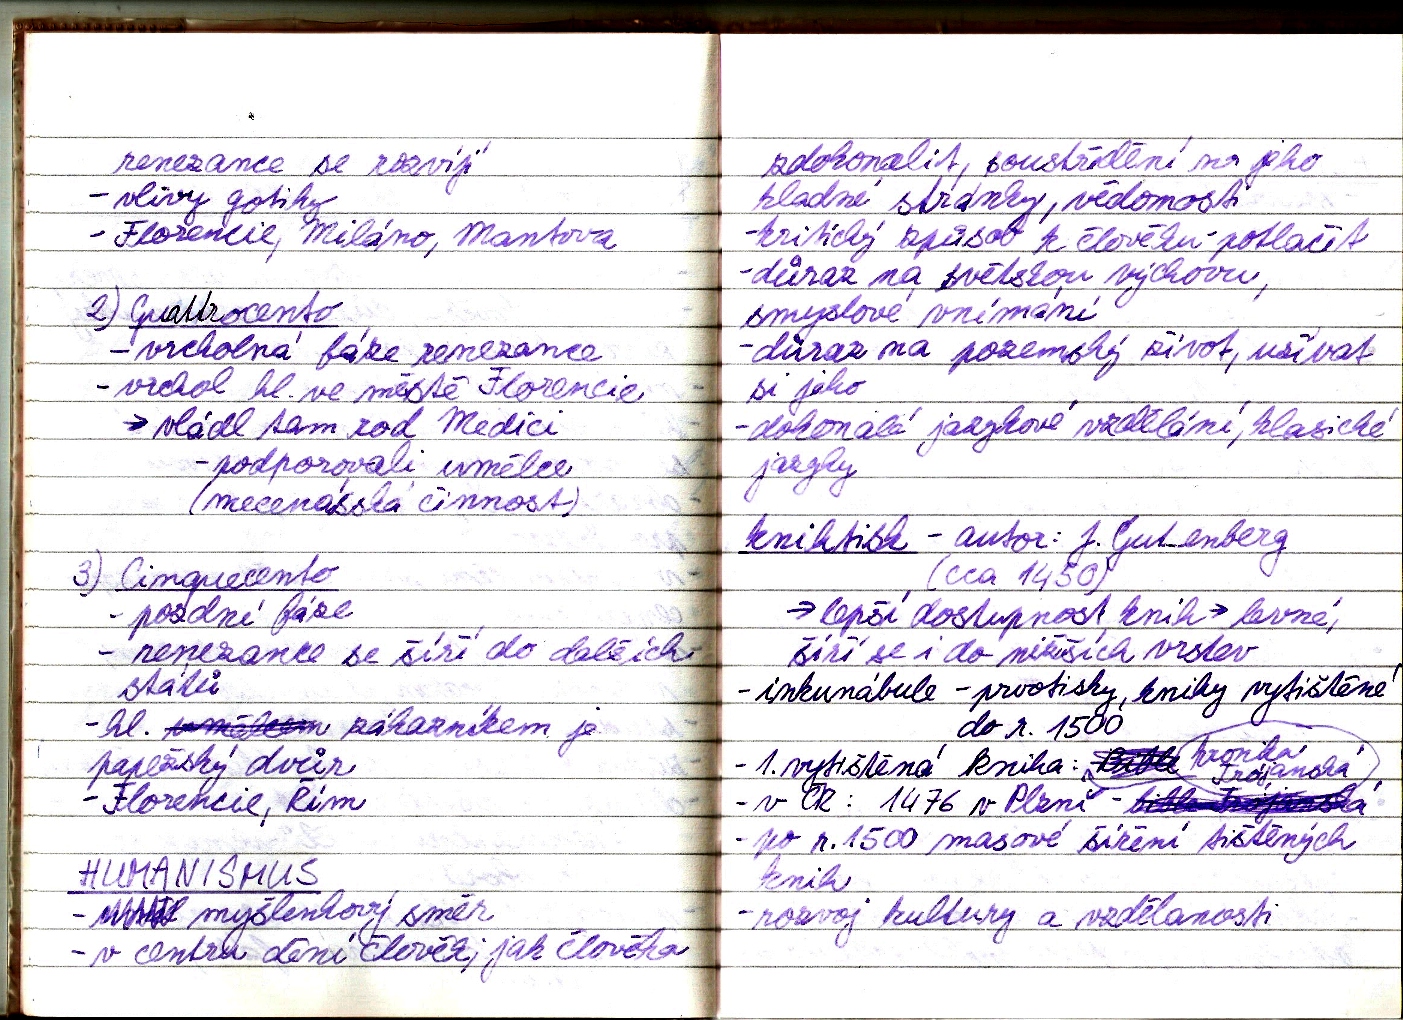 renezance se rozvíjí
- vlivy gotiky
- Florencie, Miláno, Mantova
2) Quattrocento
- vrcholná fáze renezance
- vrchol hl. ve městě Florencie
→ vládl tam rod Medici
- podporovali umělce
(mecenášská činnost)
3) Cinquecento
- pozdní fáze
- renezance se šíří do dalších
států
- hl. zákazníkem je
papežský dvůr
- Florencie, Řím
HUMANISMUS
- myšlenkový směr
- v centru dění člověk, jak člověka
zdokonalit, soustředění na jeho
kladné stránky, vědomosti
- kritický způsob k člověku - potlačit
- důraz na světskou výchovu,
smyslové vnímání
- důraz na pozemský život, užívat
si jeho
- dokonalé jazykové vzdělání, klasické
jazyky
knihtisk - autor: J. Gutenberg
(cca 1450)
→ lepší dostupnost knih → levné,
šíří se i do nižších vrstev
- inkunábule - prvotisky, knihy vytištěné
do r. 1500
- 1. vytištěná kniha: kronika
Trójanská
- v ČR: 1476 v Plzni -
- po r. 1500 masové šíření tištěných
knih
- rozvoj kultury a vzdělanosti